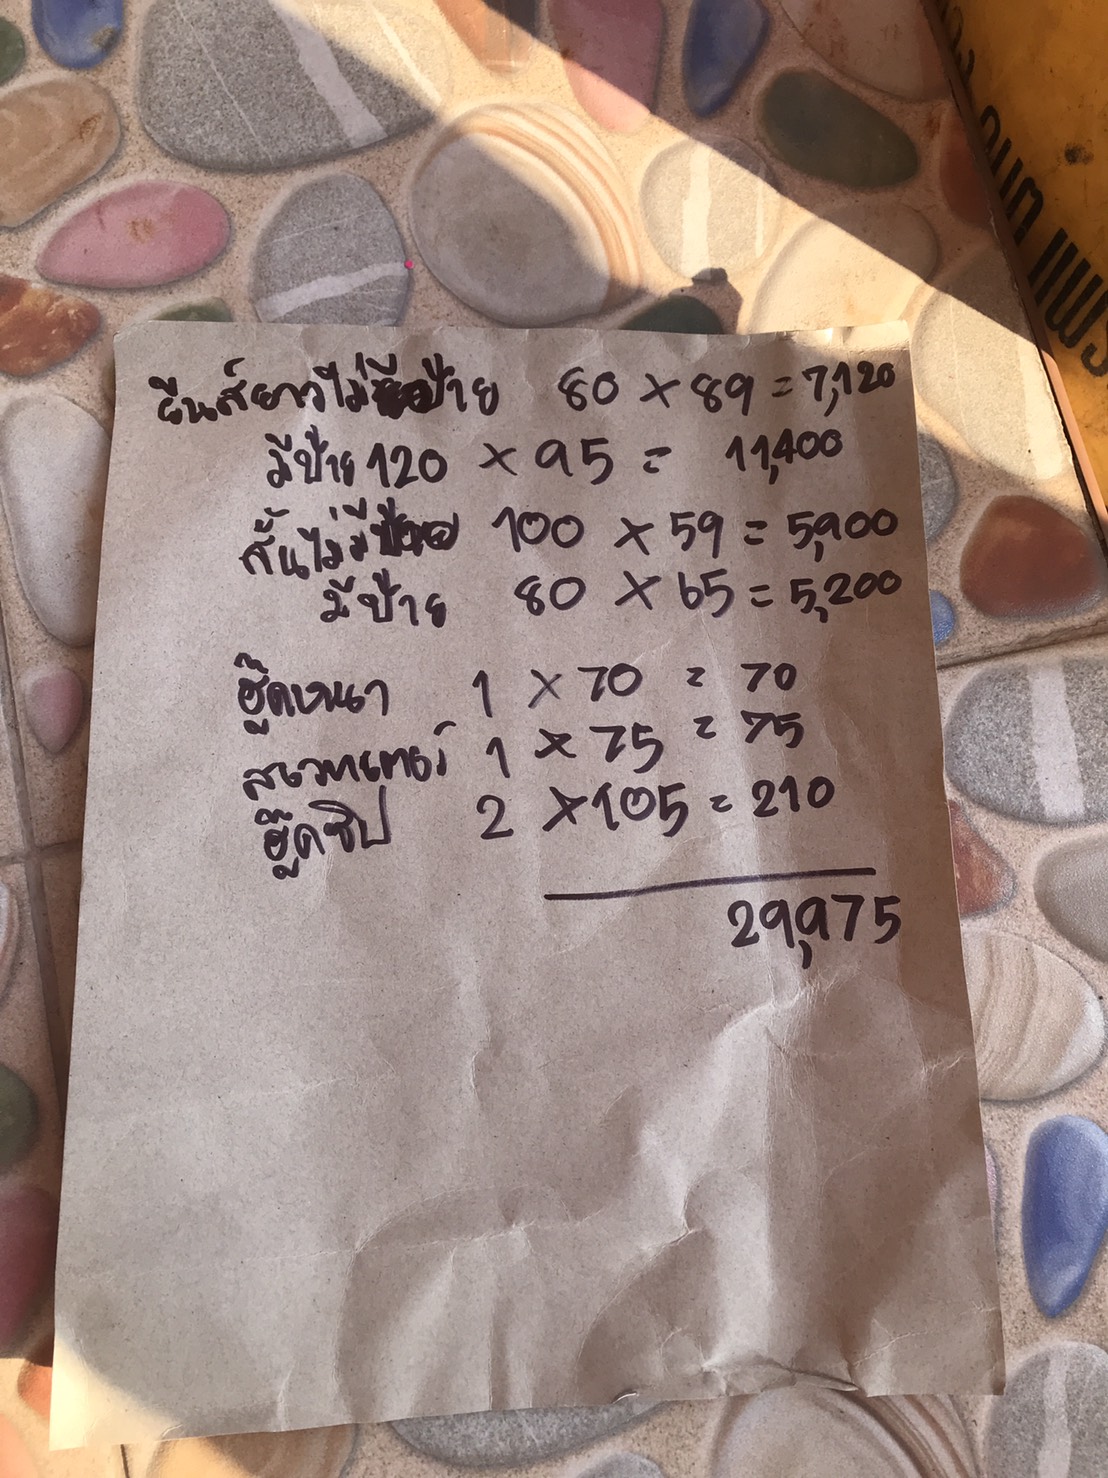 ยีนส์ยาวไม่มีป้าย 80 × 89 = 7,120
มีป้าย 120 × 95 = 11,400
สั้นไม่มีป้าย 100 × 59 = 5,900
มีป้าย 80 × 65 = 5,200
ฮู๊ดหนา 1 × 70 = 70
สเวทเตอร์ 1 × 75 = 75
ฮู๊ดซิป 2 × 105 = 210
29,975